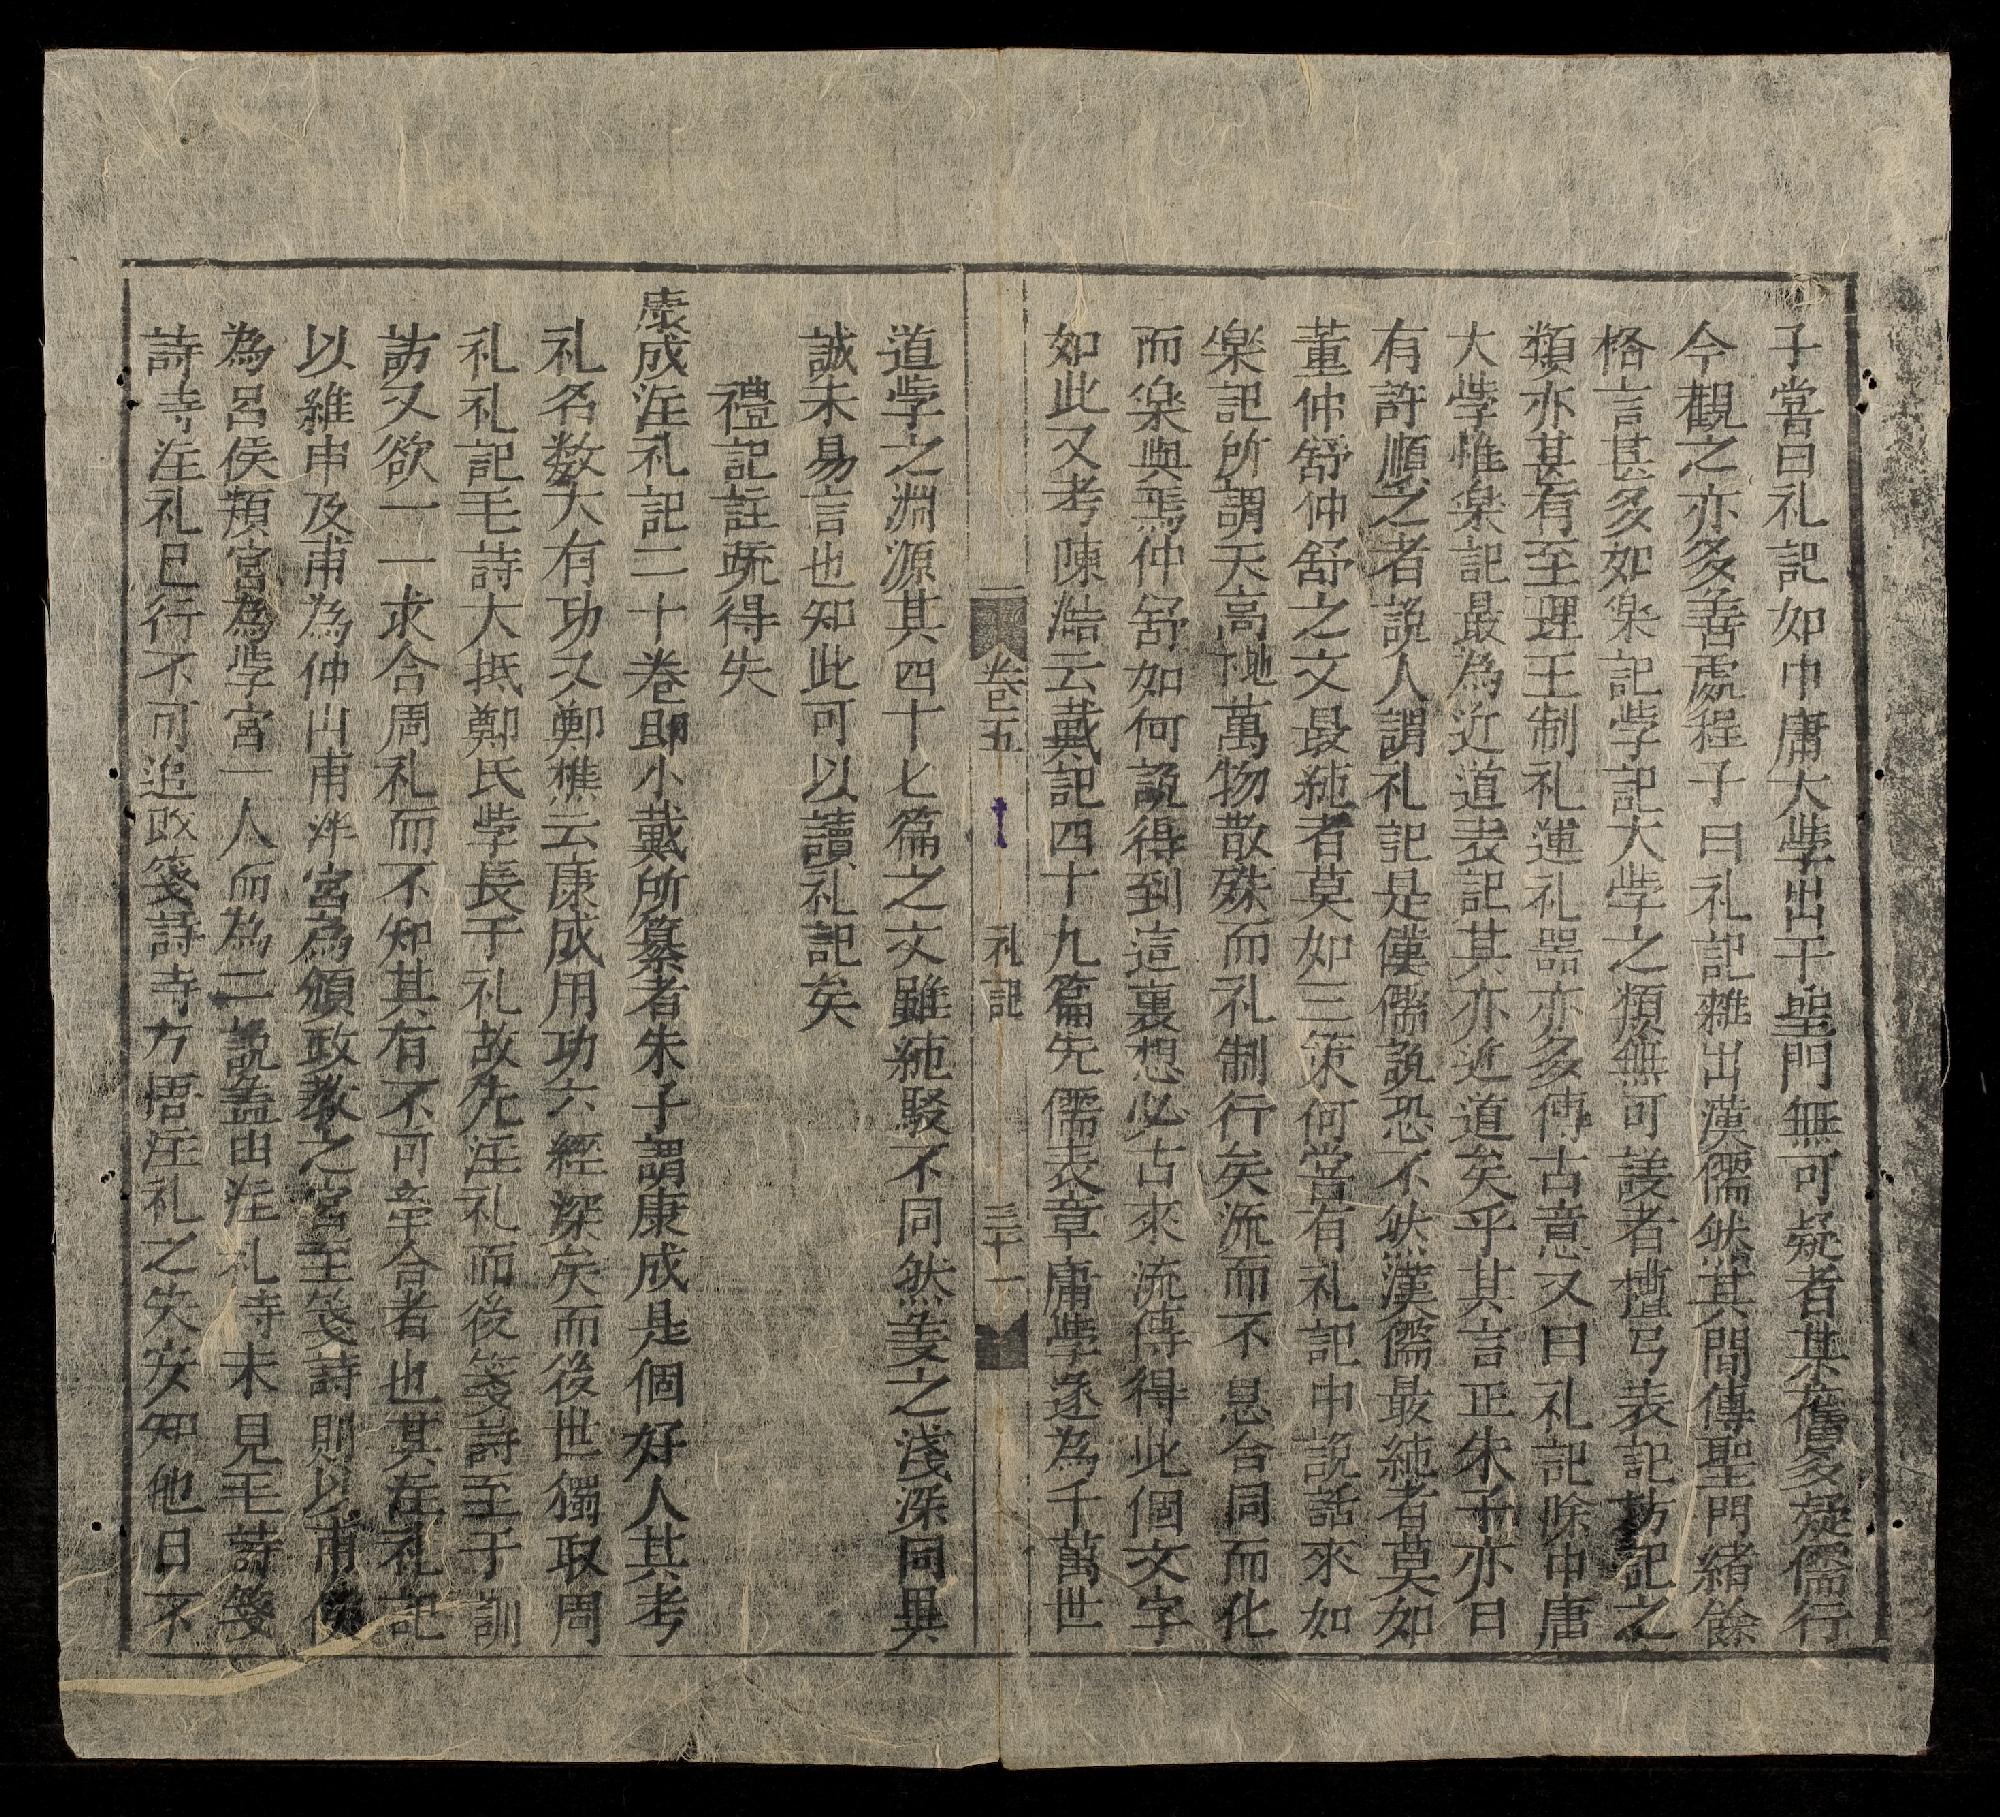 子嘗曰礼記如中庸大𭓕出于聖門無可疑者某舊多疑儒行
今觀之亦多善處程子曰礼記雜出漢儒然其間傳聖門緒餘
格言甚多如楽記𭓕記大𭓕之類無可議者檀弓表記坊記之
類亦甚有至理王制礼運礼器亦多傳古意又曰礼記除中庸
大𭓕惟楽記最為近道表記其亦近道矣乎其言正朱子亦曰
有許順之者說人謂礼記是漢儒說恐不然漢儒最純者莫如
董仲舒仲舒之文最純者莫如三策何嘗有礼記中說話來如
楽記所謂天高地下萬物散殊而礼制行矣流而不息合同而化
而楽與焉仲舒如何說得到這裏想必古來流傳得此個文字
如此又考陳澔云戴記四十九篇先儒表章庸𭓕遂為千萬世
卷已五 礼記 三十一
道𭓕之淵源其四十七篇之文雖純駁不同然義之淺深同異
誠未易言也知此可以讀礼記矣
禮記註疏得失
康成注礼記二十卷即小戴所纂者朱子謂康成是個好人其考
礼名数大有功又鄭樵云康成用功六經深矣而後世獨取周
礼礼記毛詩大抵鄭氏𭓕長于礼故先注礼而後箋詩至于訓
詁又欲一一求合周礼而不知其有不可牽合者也其注礼記
以維申及甫為仲山甫泮宮為頒政教之宮至箋詩則以甫侯
為呂侯頖宮為𭓕宮一人而為二說盖由注礼時未見毛詩箋
詩時注礼已行不可追改箋詩時方悟注礼之失安知他日不